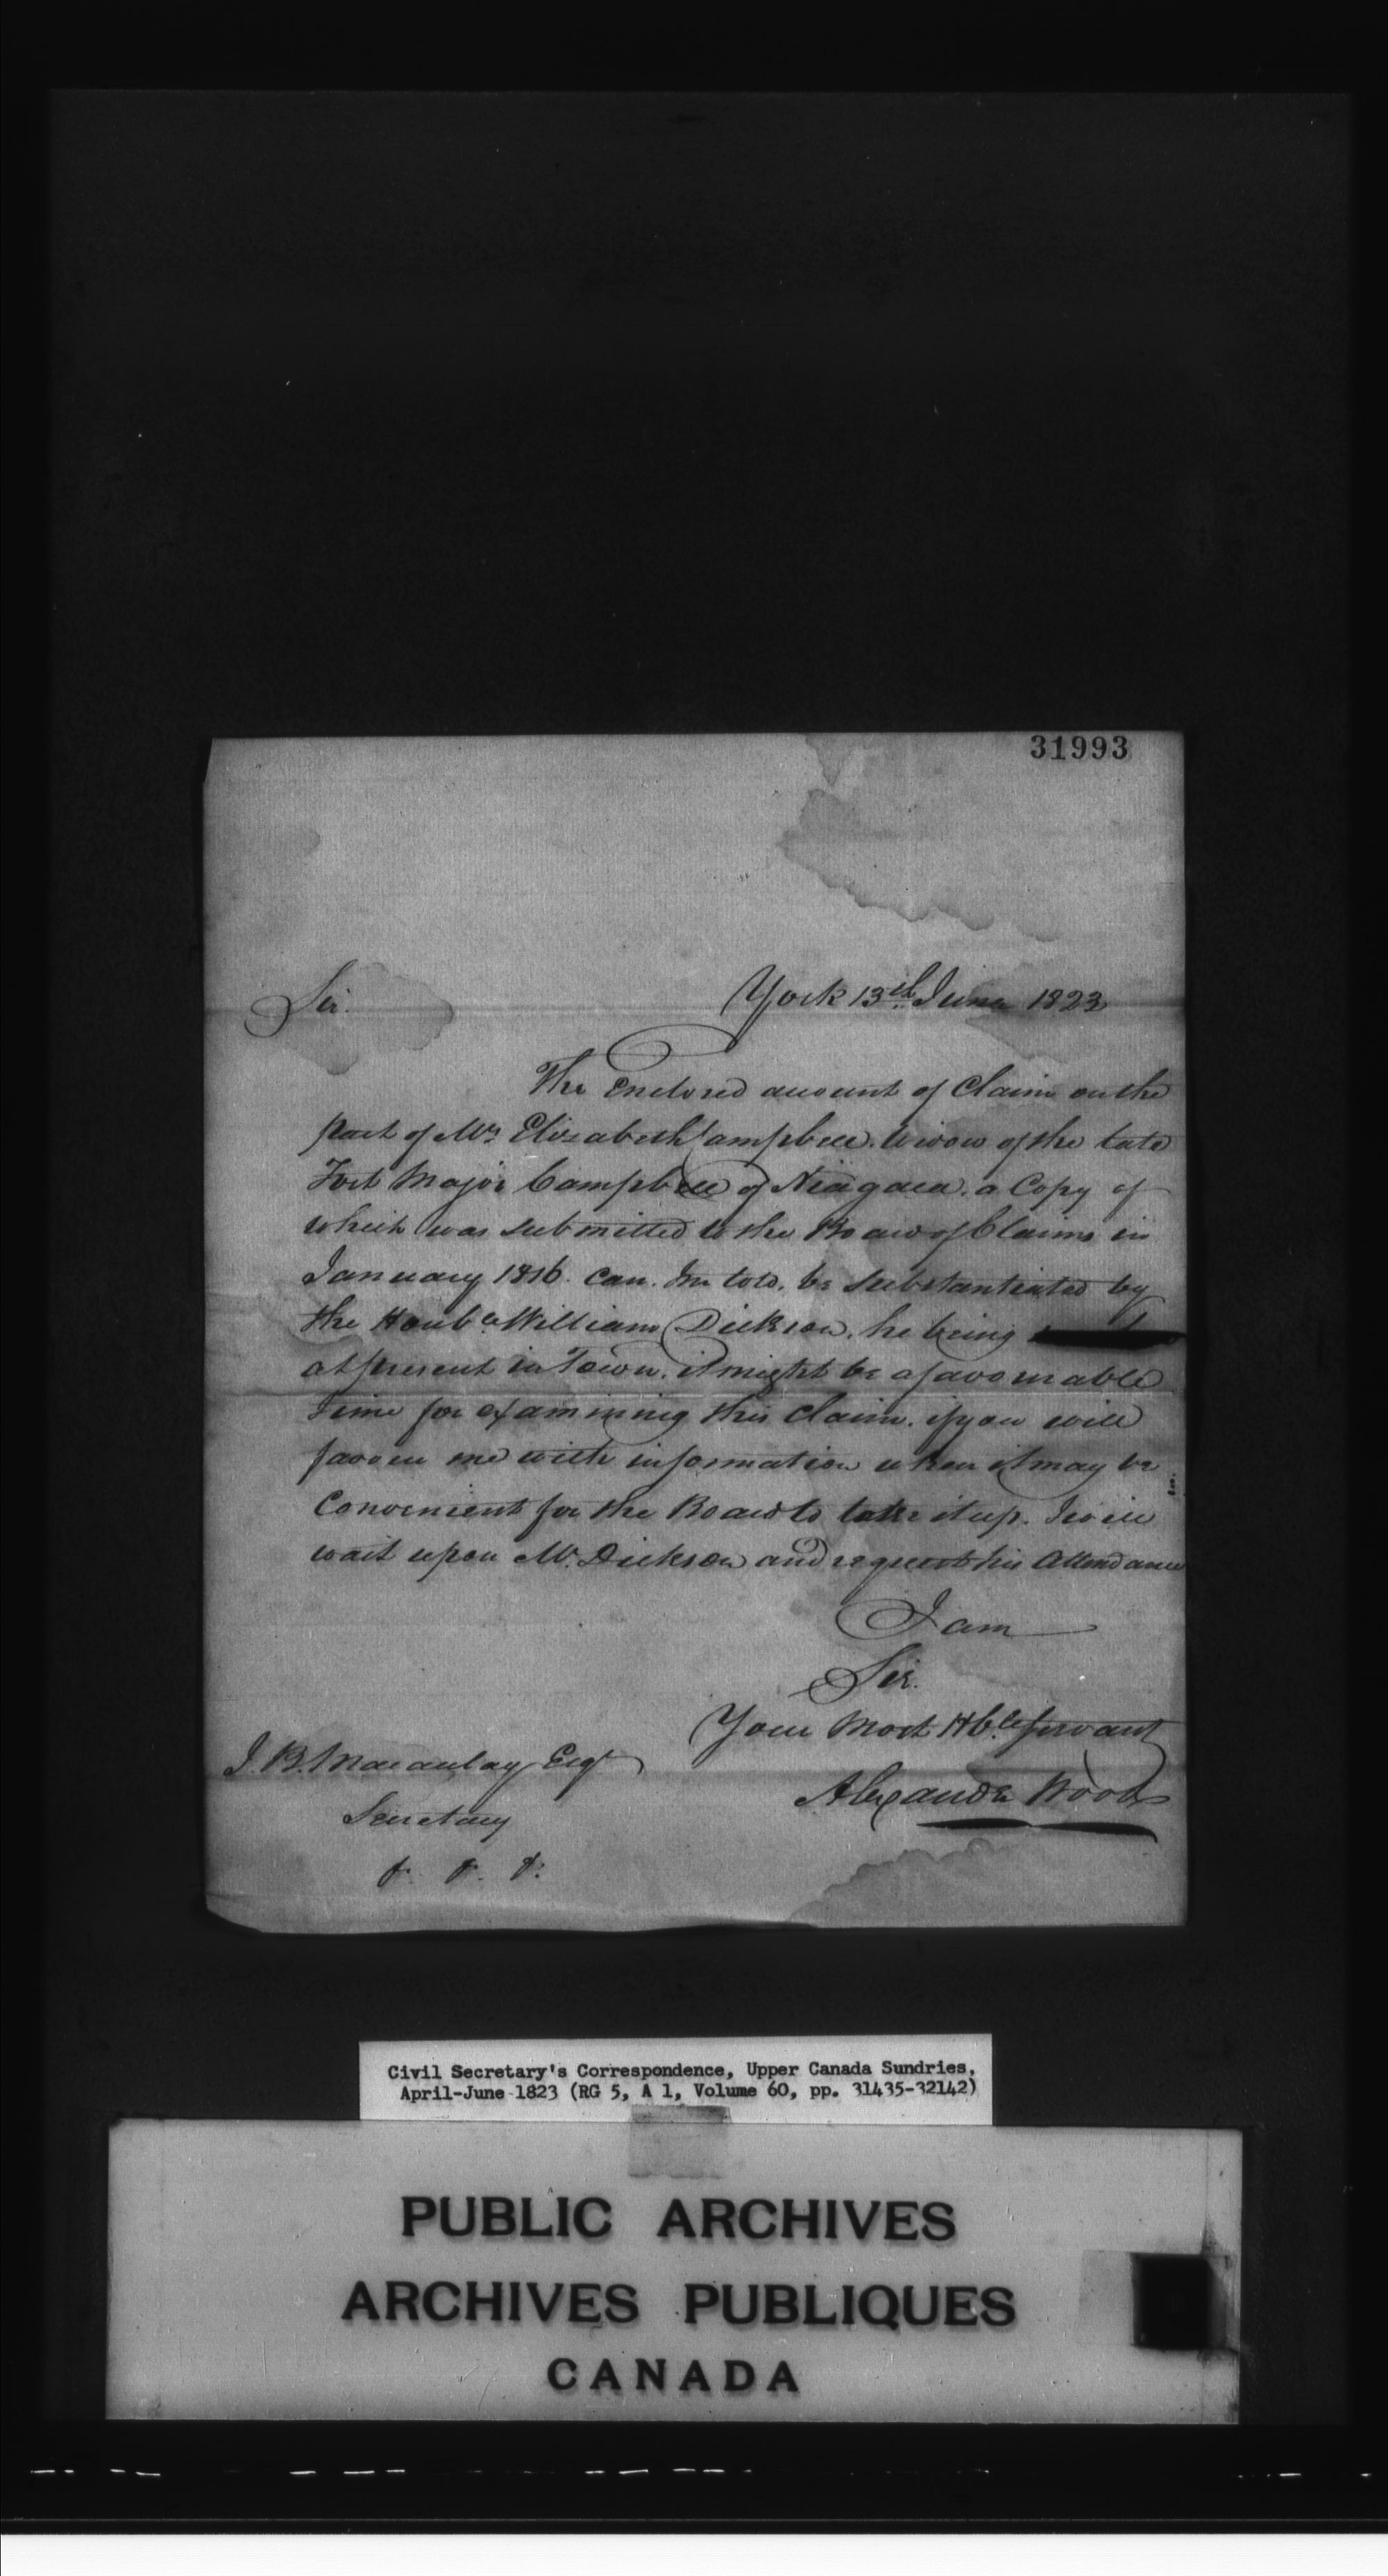 31993
Sir. York 13th June 1823
The Enclosed account of Claim on the
part of Mrs Elizabeth Campbell. Widow of the late
Fort Major Campbell of Niagara. a Copy of
which was submitted to the Board of Claims in
January 1816. can. I'm told, be substantiated by
the Honble William Dickson, he being
at present in Town. it might be a favourable
time for examining this Claim. if you will
favour me with information when it may be
Convenient for the Board to take it up. I will
wait upon Mr Dickson and request his Attendance
I am
Sir.
Your Most Hble Servant
Alexander Wood
J. B. Macaulay Esqr
Secretary
&. &. &.
Civil Secretary's Correspondence, Upper Canada Sundries,
April-June 1823 (RG 5, A 1, Volume 60, pp. 31435-32142)
PUBLIC ARCHIVES
ARCHIVES PUBLIQUES
CANADA